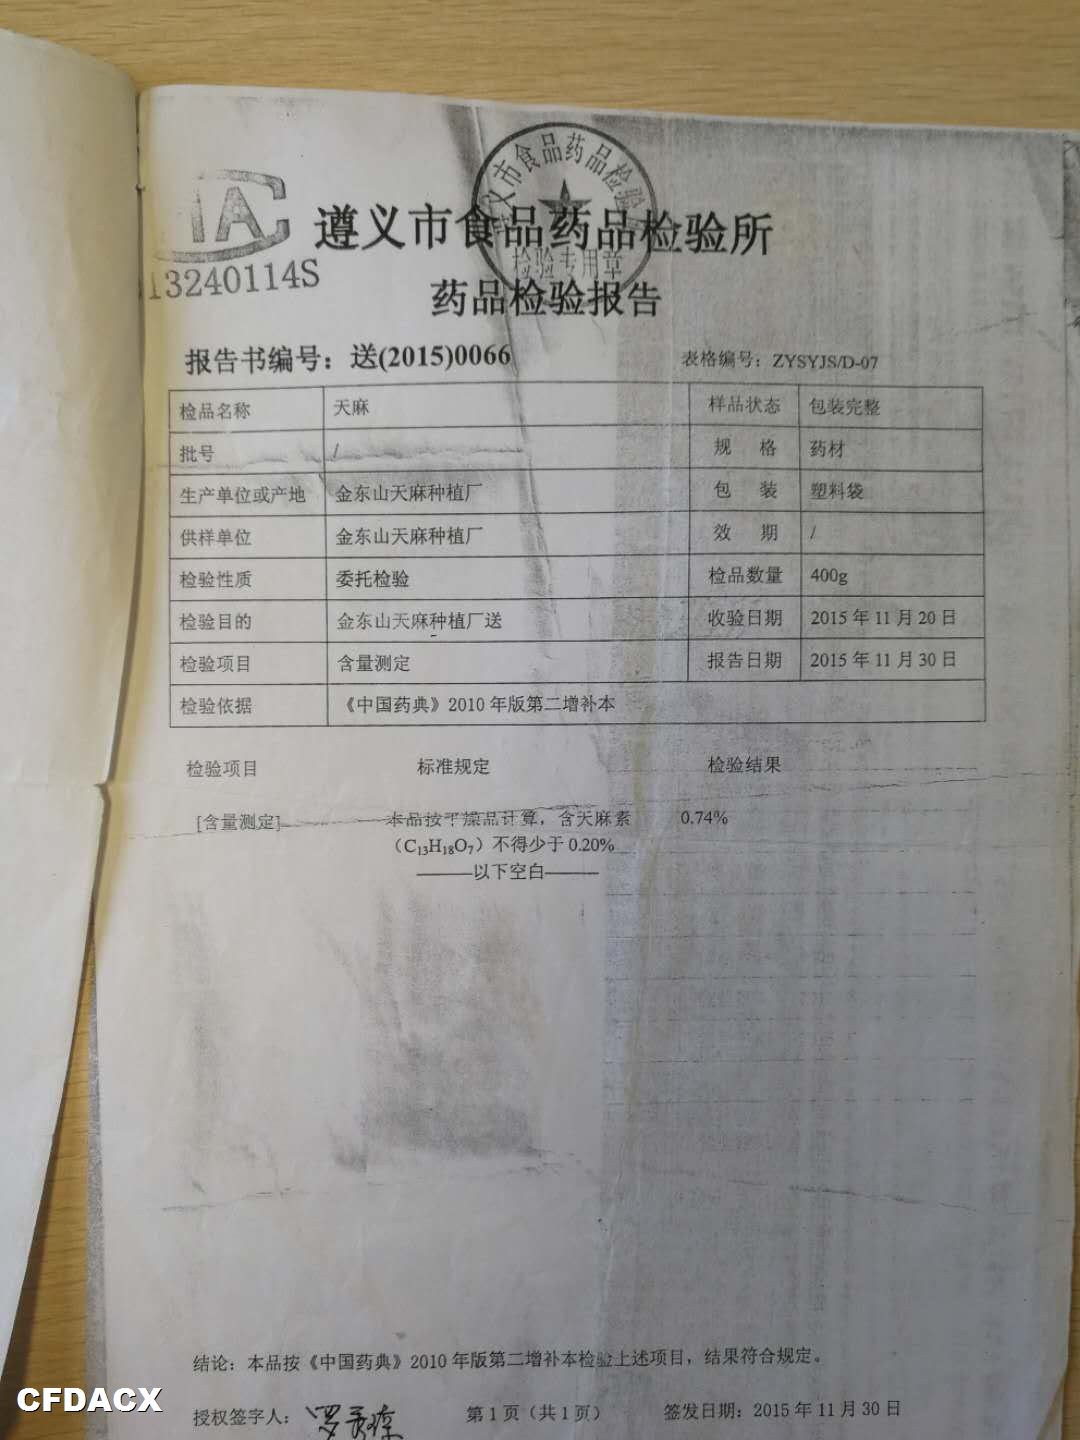 遵义市食品药品检验
检验专用章
MA
13240114S
遵义市食品药品检验所
药品检验报告
报告书编号：送(2015)0066 表格编号：ZYSYJS/D-07
检品名称 天麻 样品状态 包装完整
批号 / 规 格 药材
生产单位或产地 金东山天麻种植厂 包 装 塑料袋
供样单位 金东山天麻种植厂 效 期 /
检验性质 委托检验 检品数量 400g
检验目的 金东山天麻种植厂送 收验日期 2015年11月20日
检验项目 含量测定 报告日期 2015年11月30日
检验依据 《中国药典》2010年版第二增补本
检验项目 标准规定 检验结果
[含量测定] 本品按干燥品计算，含天麻素 0.74%
（C₁₃H₁₈O₇）不得少于0.20%
———以下空白———
结论：本品按《中国药典》2010年版第二增补本检验上述项目，结果符合规定。
授权签字人： 第1页（共1页） 签发日期：2015年11月30日
CFDACX